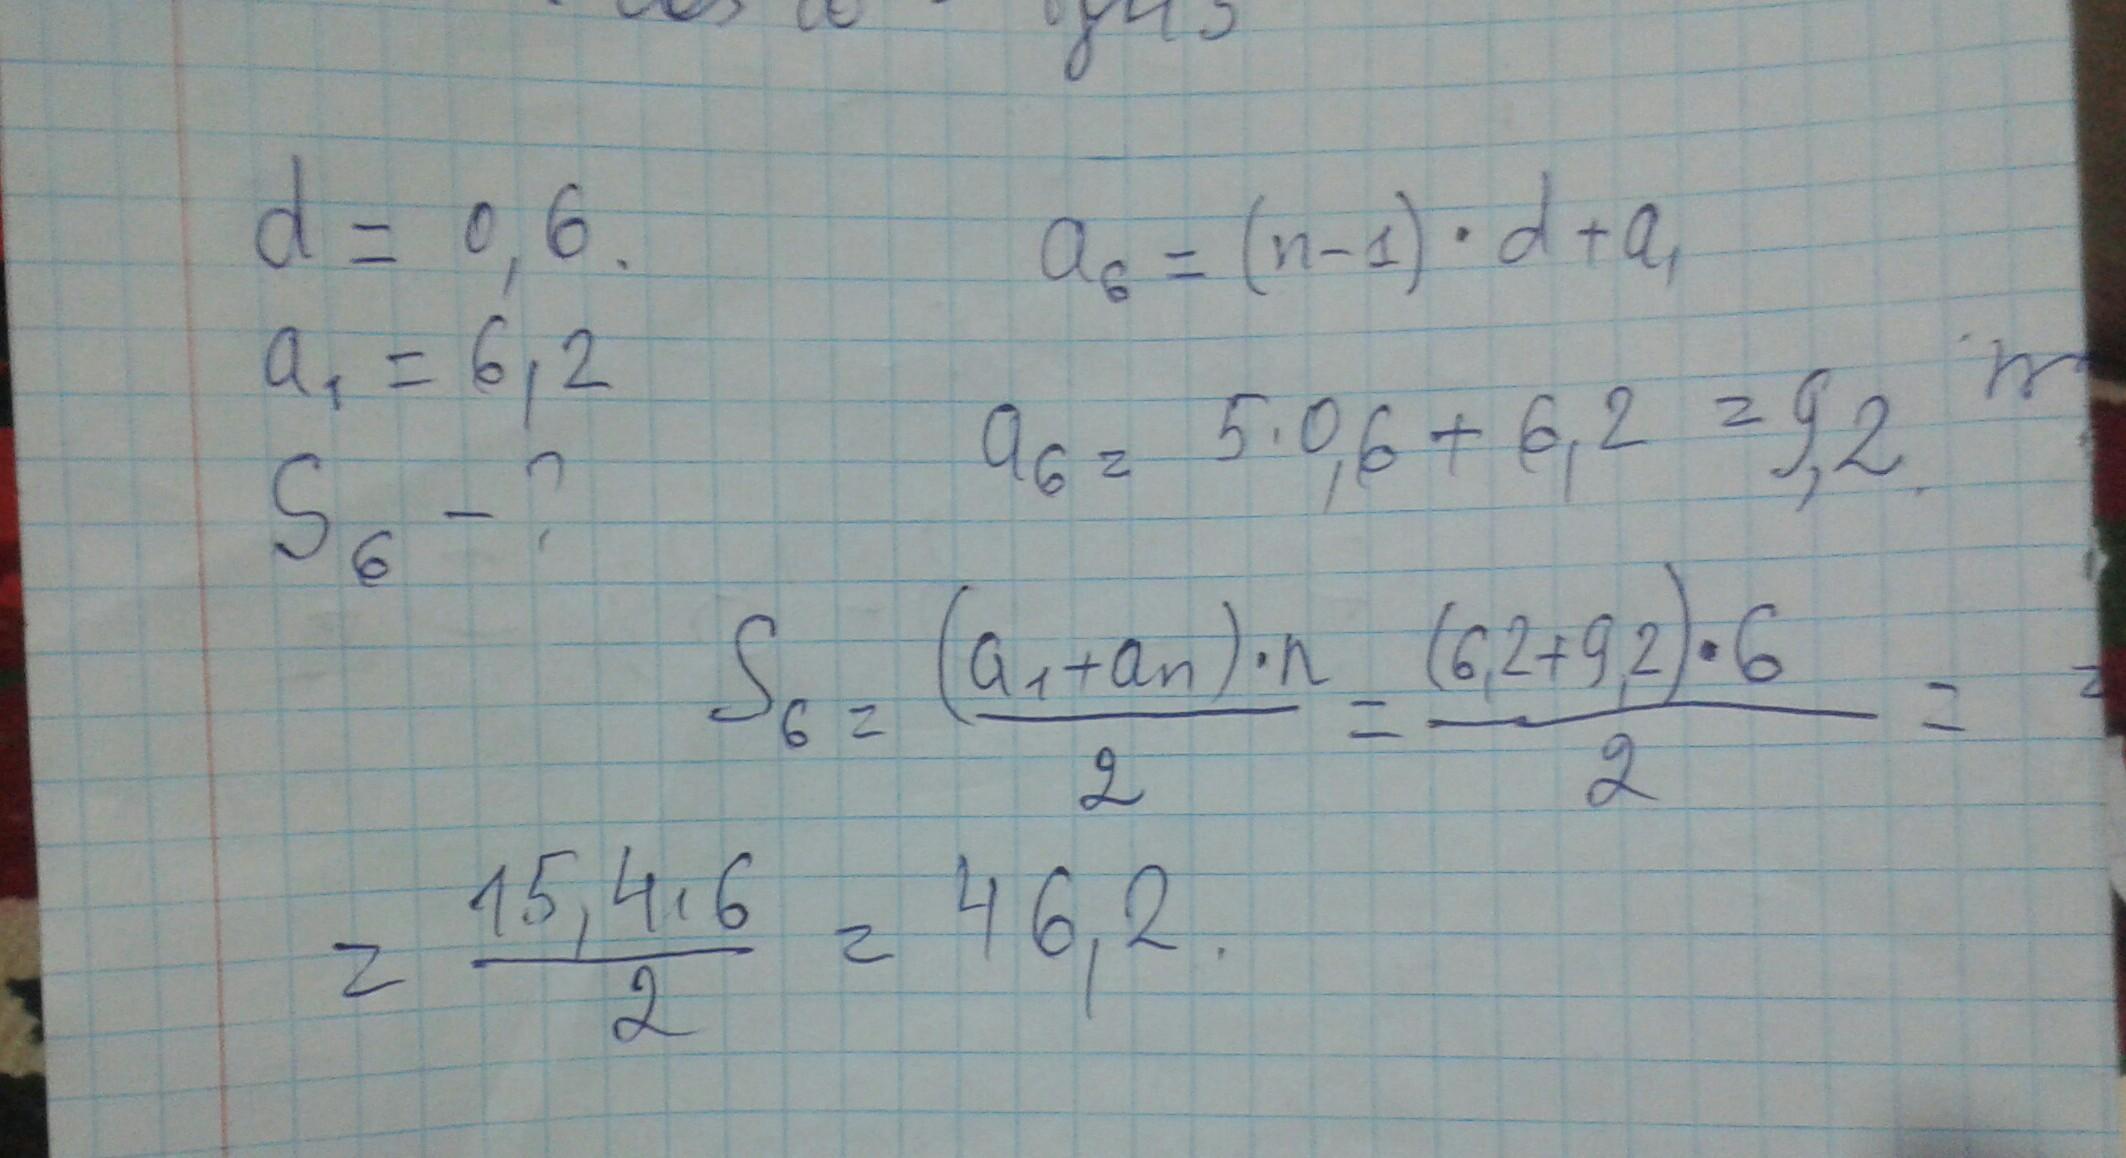 d = 0,6.
a₁ = 6,2
S₆ - ?
a₆ = (n-1) · d + a₁
a₆ = 5·0,6 + 6,2 = 9,2.
S₆ = (a₁+aₙ)·n / 2 = (6,2+9,2)·6 / 2 =
= 15,4·6 / 2 = 46,2.